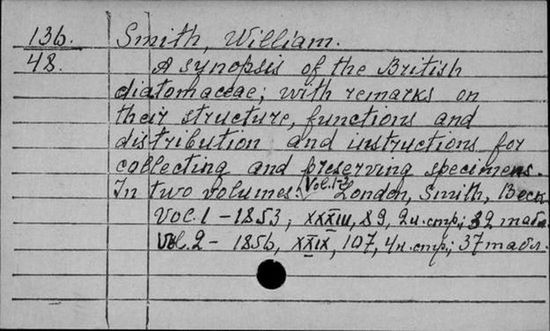 136. Smith, William.
48. A synopsis of the British
diatomaceae; with remarks on
their structure, functions and
distribution and instructions for
collecting and preserving specimens.
In two volumes. Vol. 1-2 London, Smith, Beck
Vol. 1 - 1853, XXXIII, 89, 2 н. стр.; 32 табл.
Vol. 2 - 1856, XXIX, 107, 4 н. стр.; 37 табл.